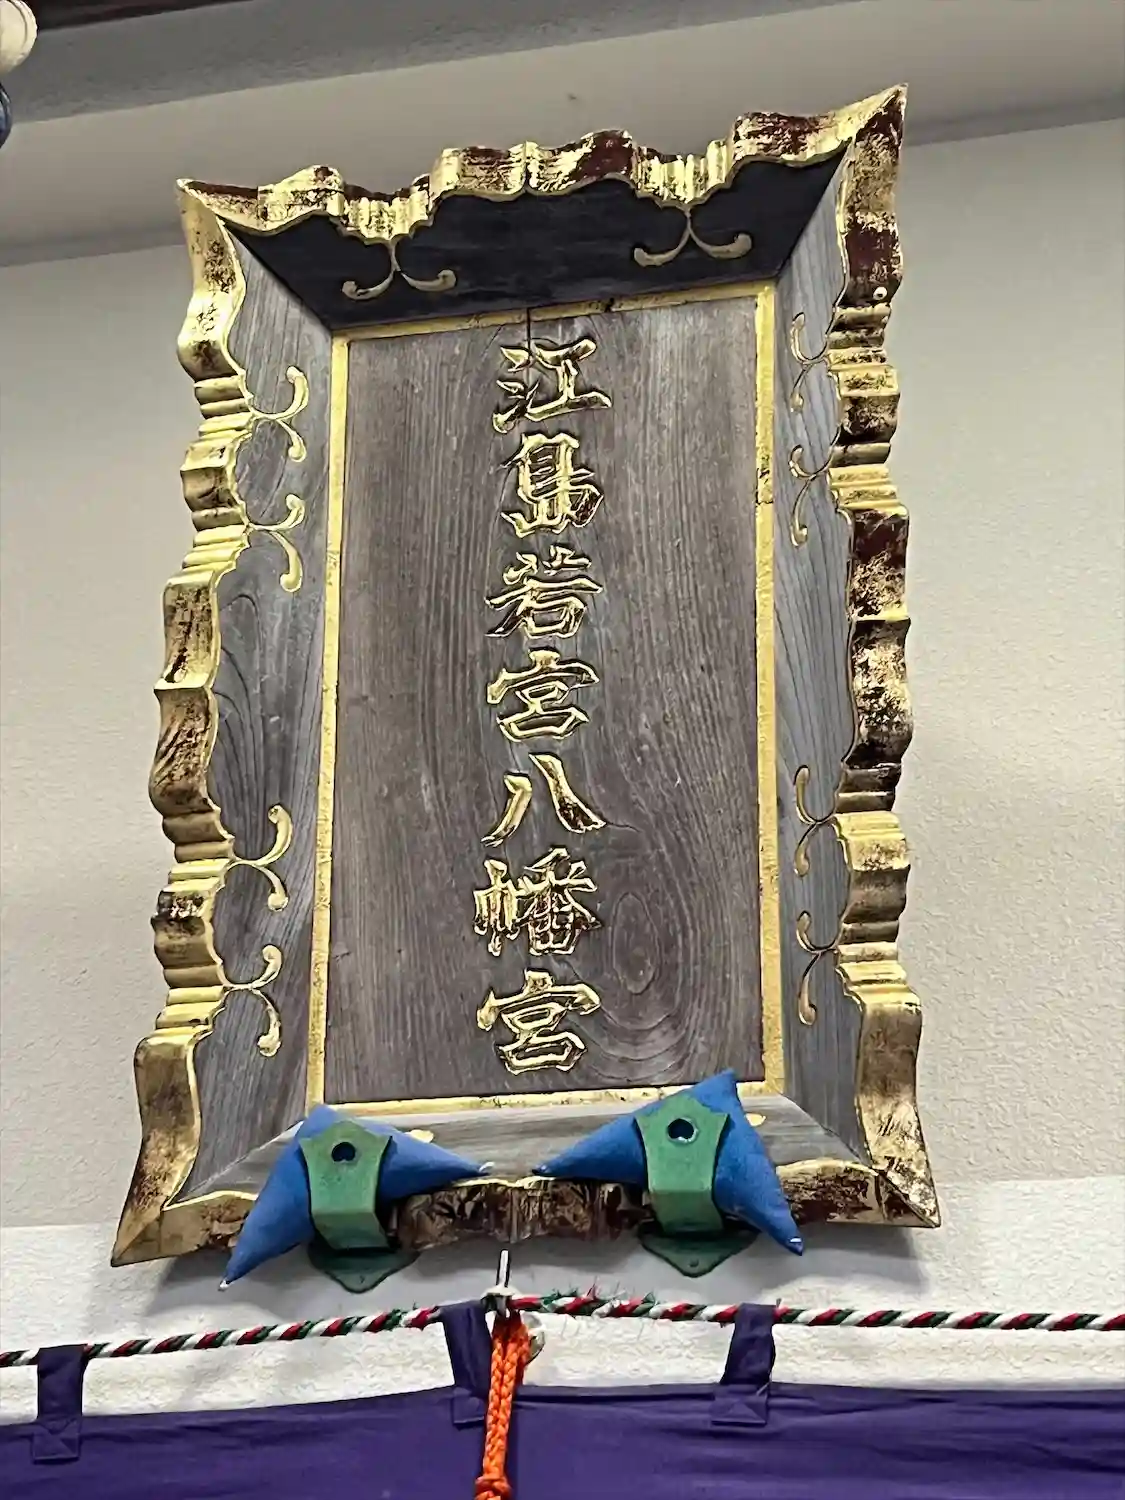 江島若宮八幡宮